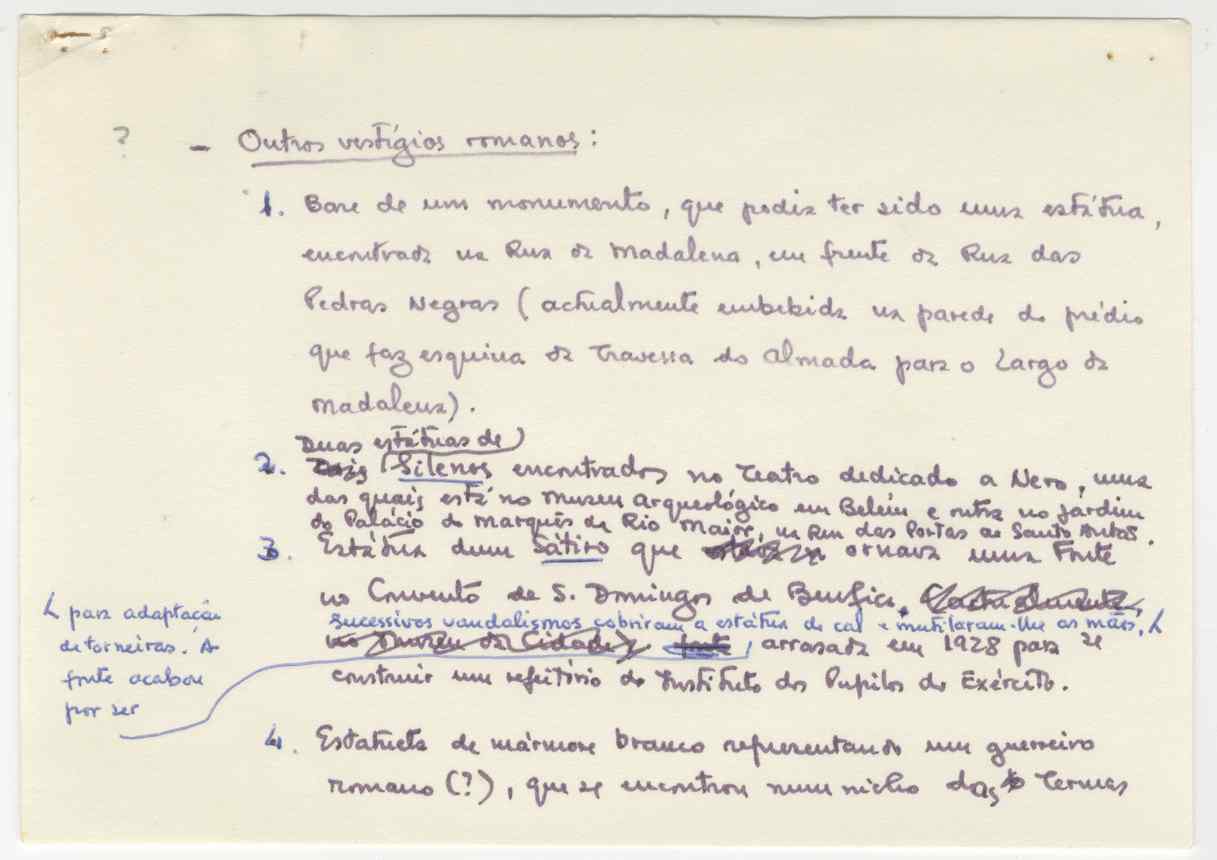 ? - Outros vestígios romanos:
1. Base de um monumento, que podia ter sido uma estátua,
encontrada na Rua da Madalena, em frente da Rua das
Pedras Negras (actualmente embebida na parede do prédio
que faz esquina da Travessa do Almada para o Largo da
Madalena).
Duas estátuas de
2. Dois Silenos encontrados no Teatro dedicado a Nero, uma
das quais está no Museu Arqueológico em Belém e outra no jardim
do Palácio do Marquês de Rio Maior, na Rua das Portas de Santo Antão.
3. Estátua dum Sátiro que ornava uma Fonte
no Convento de S. Domingos de Benfica. (Actualmente,
sucessivos vandalismos cobriram a estátua de cal e mutilaram-lhe as mãos,
no Museu da Cidade) arrasada em 1928 para se
construir um refeitório do Instituto dos Pupilos do Exército.
para adaptação
de torneiras. A
fonte acabou
por ser
4. Estatueta de mármore branco representando um guerreiro
romano (?), que se encontrou num nicho das Termas